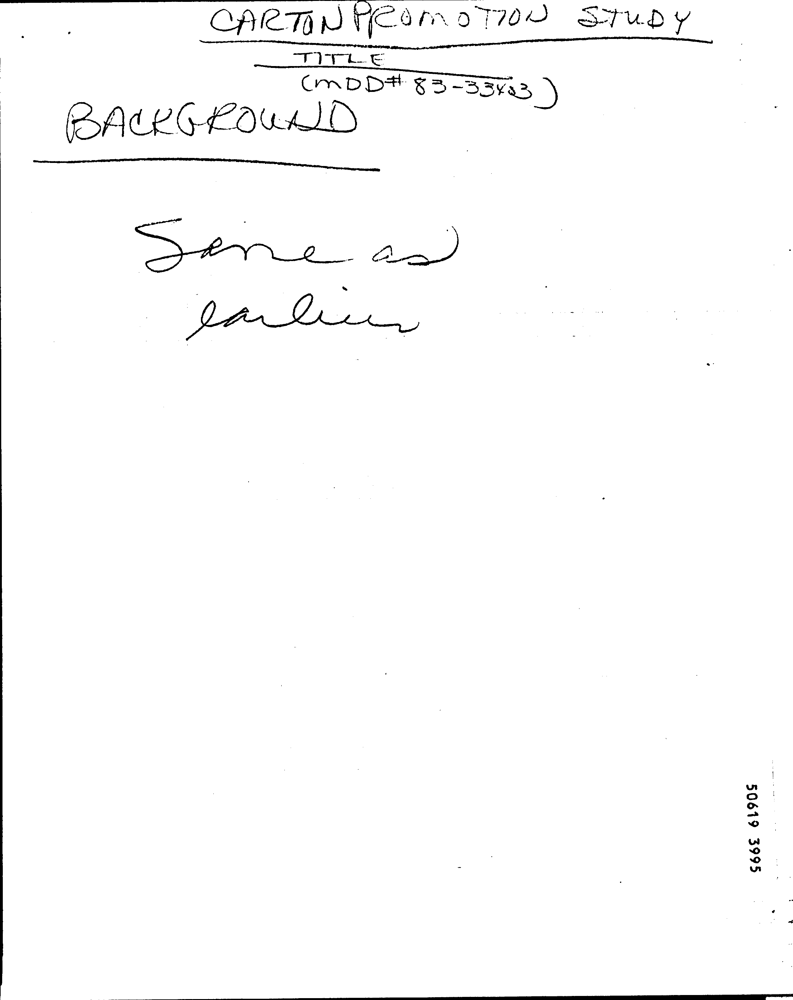 CARTON PROMOTION STUDY
TITLE
(MDD# 83-33403)
BACKGROUND
Same as
earlier
50619 3995